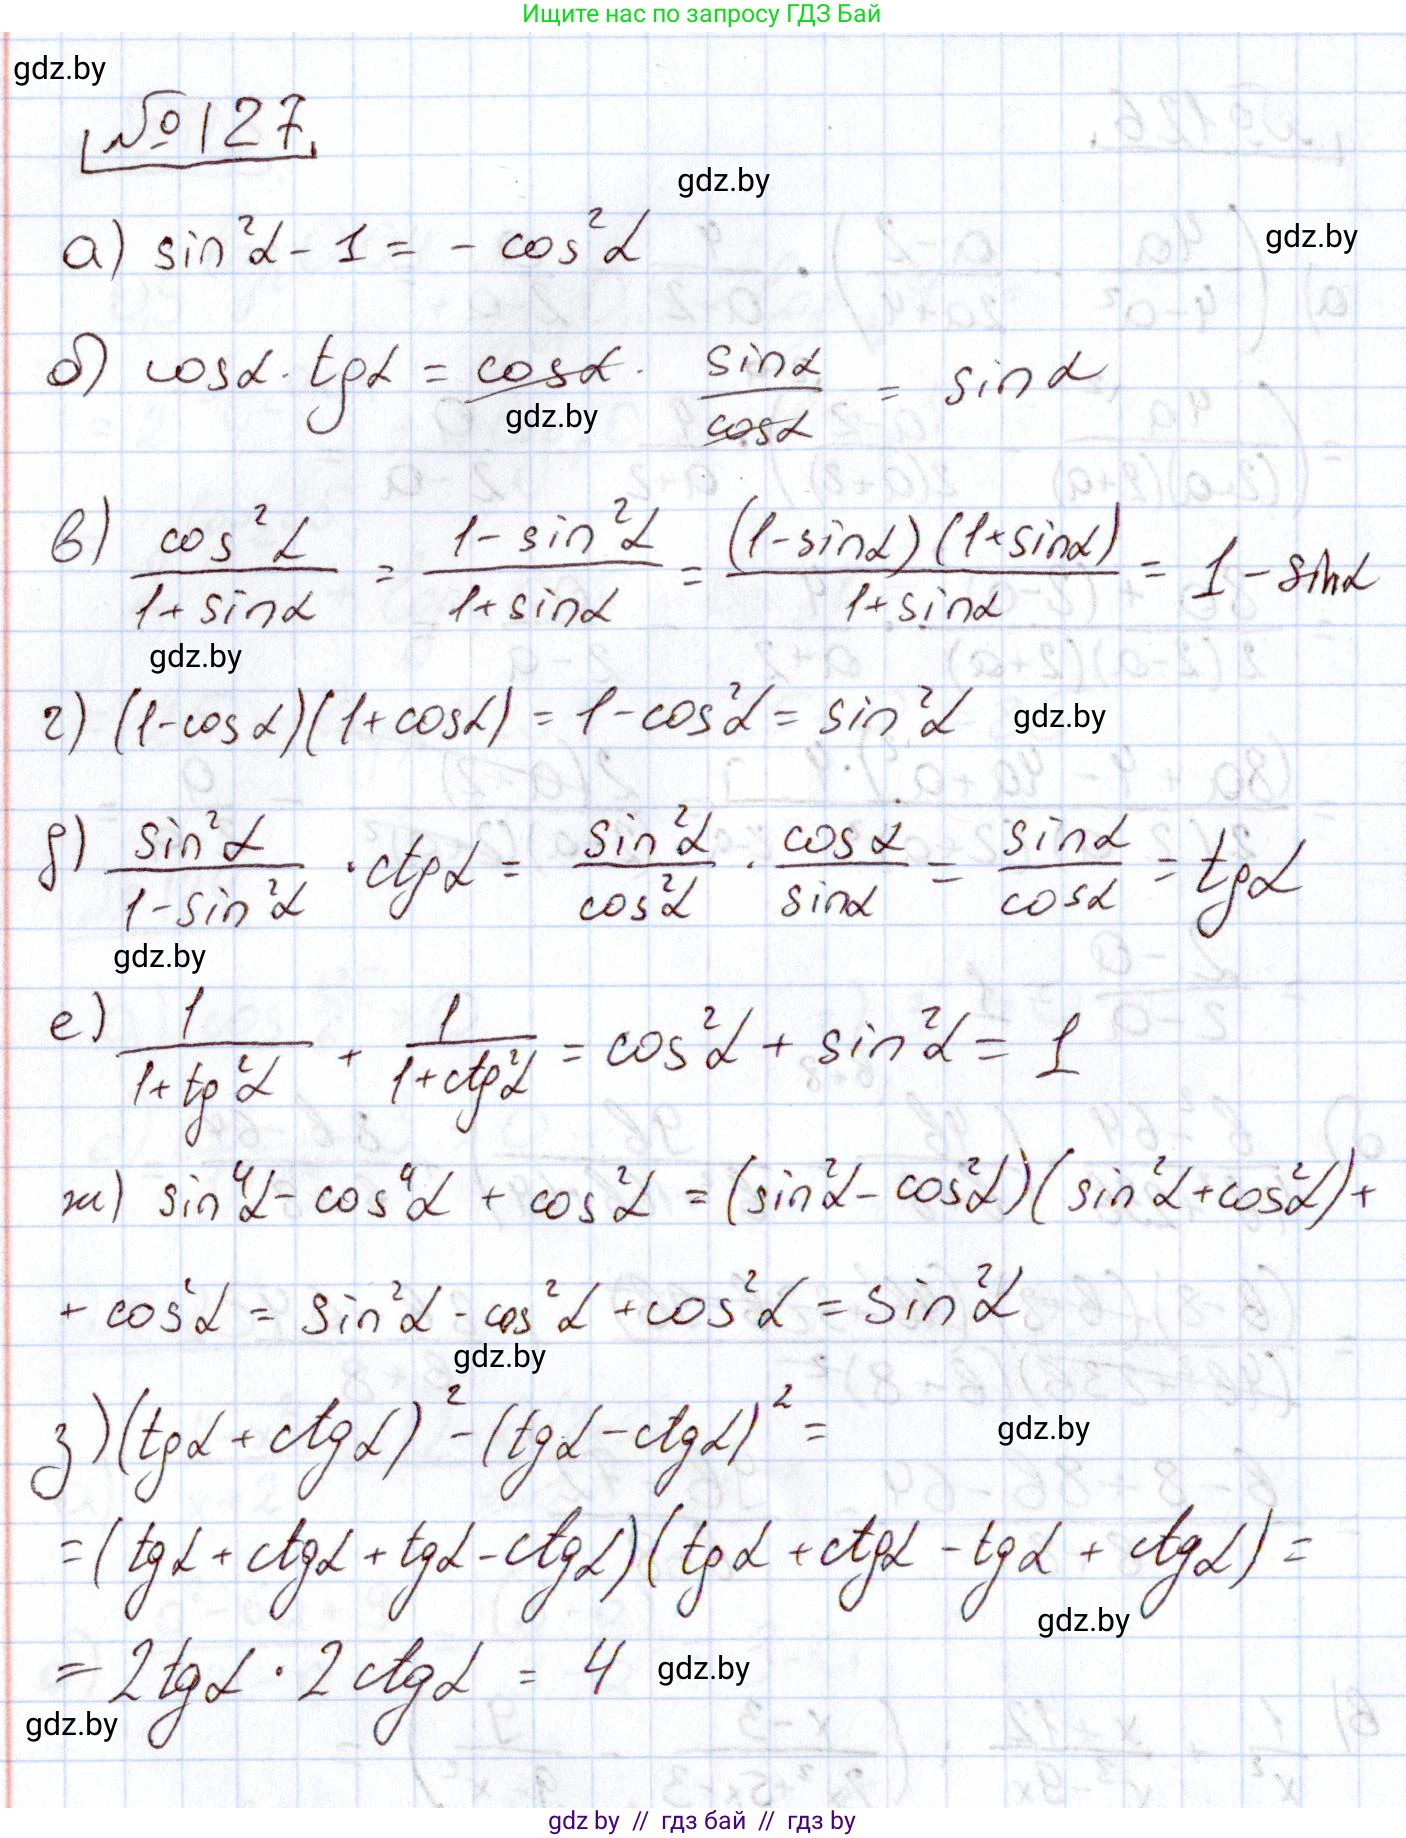 Ищите нас по запросу ГДЗ Бай
gdz.by
№127
gdz.by
gdz.by
а) sin²α - 1 = - cos²α
б) cosα · tgα = cosα · sinα/cosα = sinα
gdz.by
в) cos²α/(1+sinα) = (1-sin²α)/(1+sinα) = (1-sinα)(1+sinα)/(1+sinα) = 1-sinα
gdz.by
г) (1-cosα)(1+cosα) = 1-cos²α = sin²α
gdz.by
д) sin²α/(1-sin²α) · ctgα = sin²α/cos²α · cosα/sinα = sinα/cosα = tgα
gdz.by
е) 1/(1+tg²α) + 1/(1+ctg²α) = cos²α + sin²α = 1
ж) sin⁴α - cos⁴α + cos²α = (sin²α - cos²α)(sin²α+cos²α)+
+ cos²α = sin²α - cos²α + cos²α = sin²α
gdz.by
з) (tgα + ctgα)² - (tgα - ctgα)² =
gdz.by
= (tgα + ctgα + tgα - ctgα)(tgα + ctgα - tgα + ctgα) =
gdz.by
= 2tgα · 2ctgα = 4
gdz.by
gdz.by
gdz.by // гдз бай // гдз by